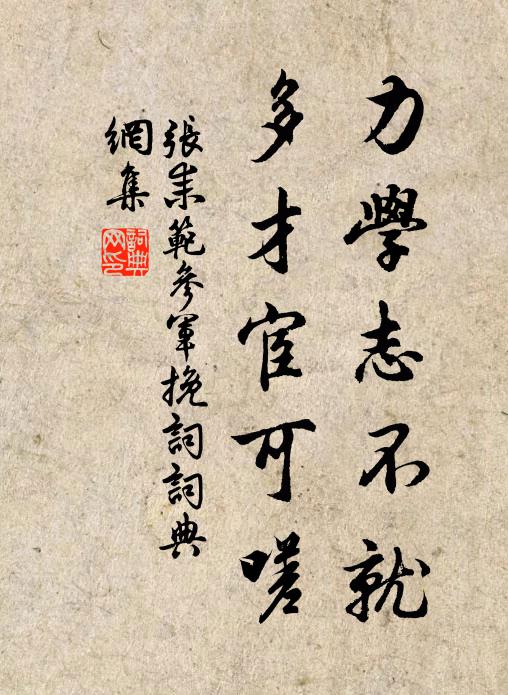 力學志不就
多才宦可嗟
張朱範參軍挽詞詞典
網集
詞典
网印